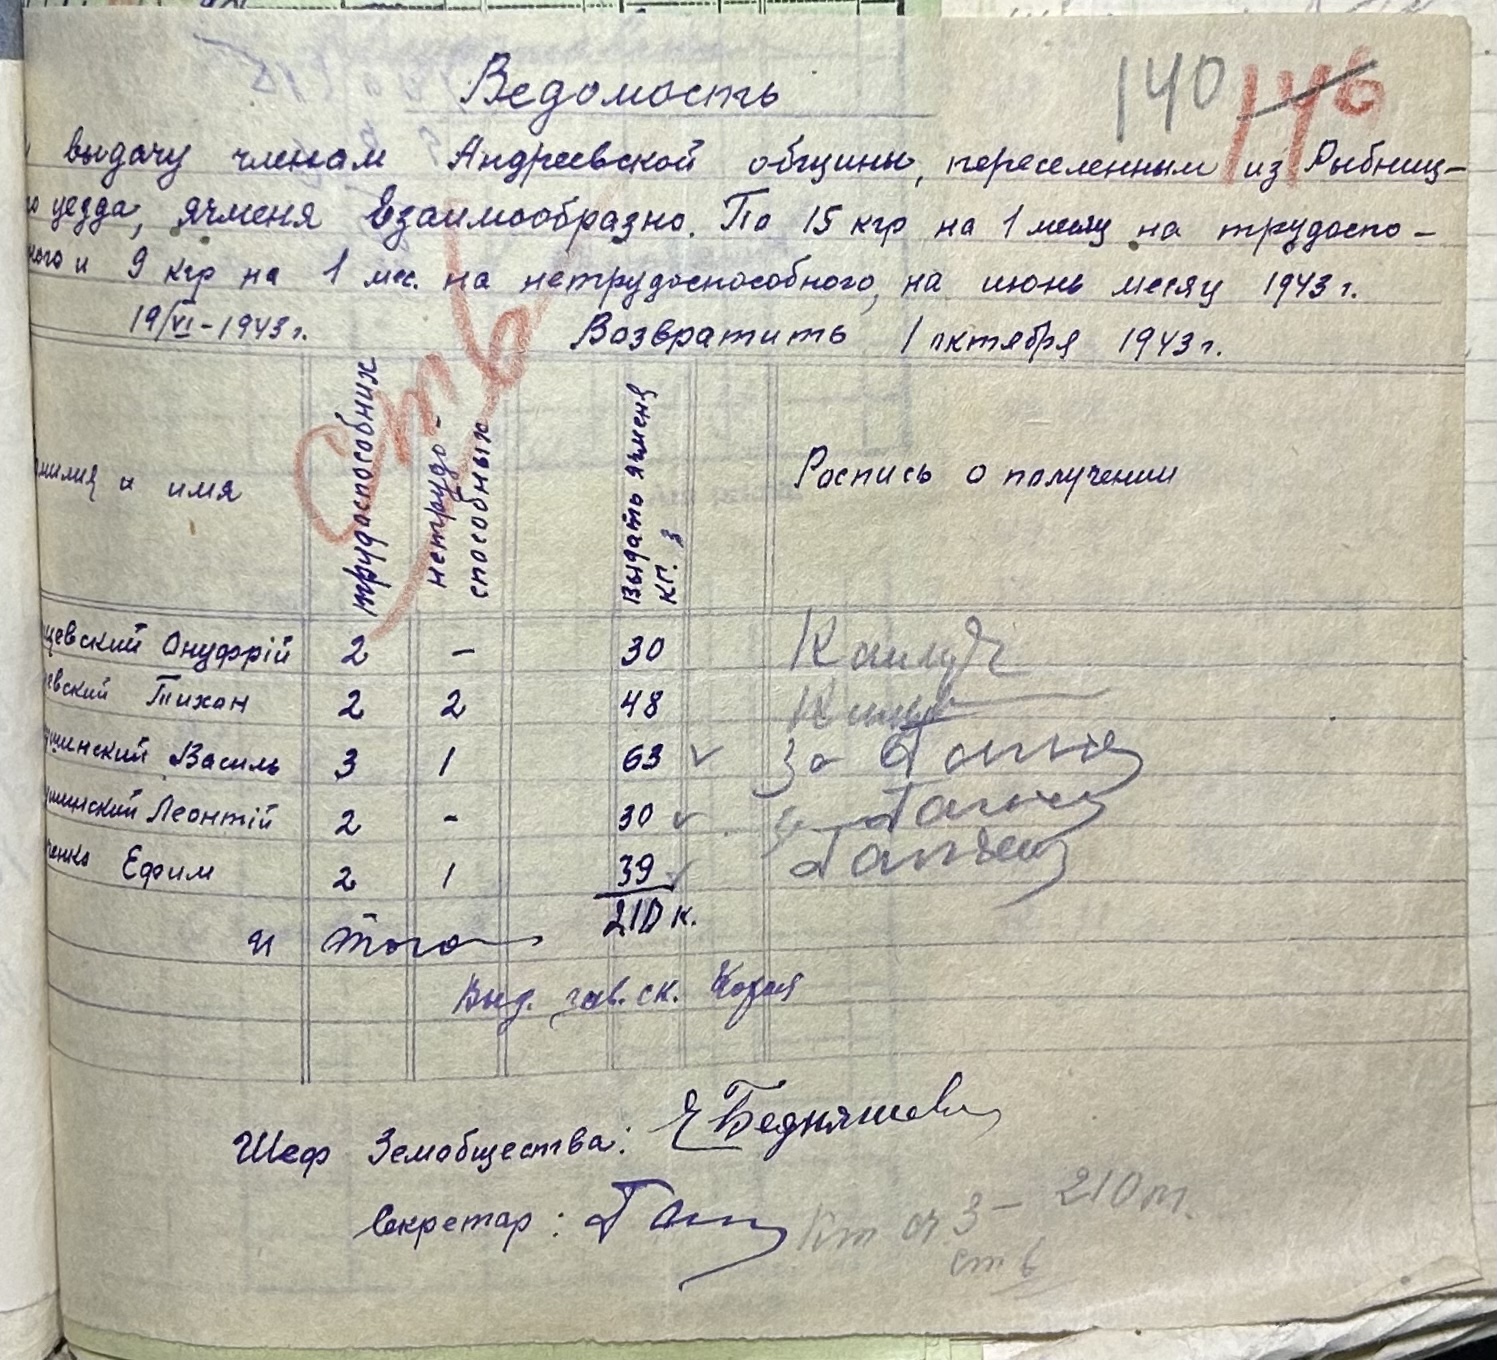 140 146
Ведомость
выдачу членам Андреевской общины, переселенным из Рыбниц-
го уезда, ячменя взаимообразно. По 15 кгр на 1 месяц на трудоспо-
ного и 9 кгр на 1 мес. на нетрудоспособного, на июнь месяц 1943 г.
19/VI-1943 г. Возвратить 1 октября 1943 г.
Ств
милия и имя трудоспособних нетрудо-способных Выдать ячменя кг. Роспись о получении
цевский Онуфрій 2 - 30
евский Тихон 2 2 48
шинский Василь 3 1 63 За
шинский Леонтій 2 - 30
ченко Ефим 2 1 39
Итого 210 к.
Выд. зав. ск.
Шеф Земобщества:
Секретар:
210